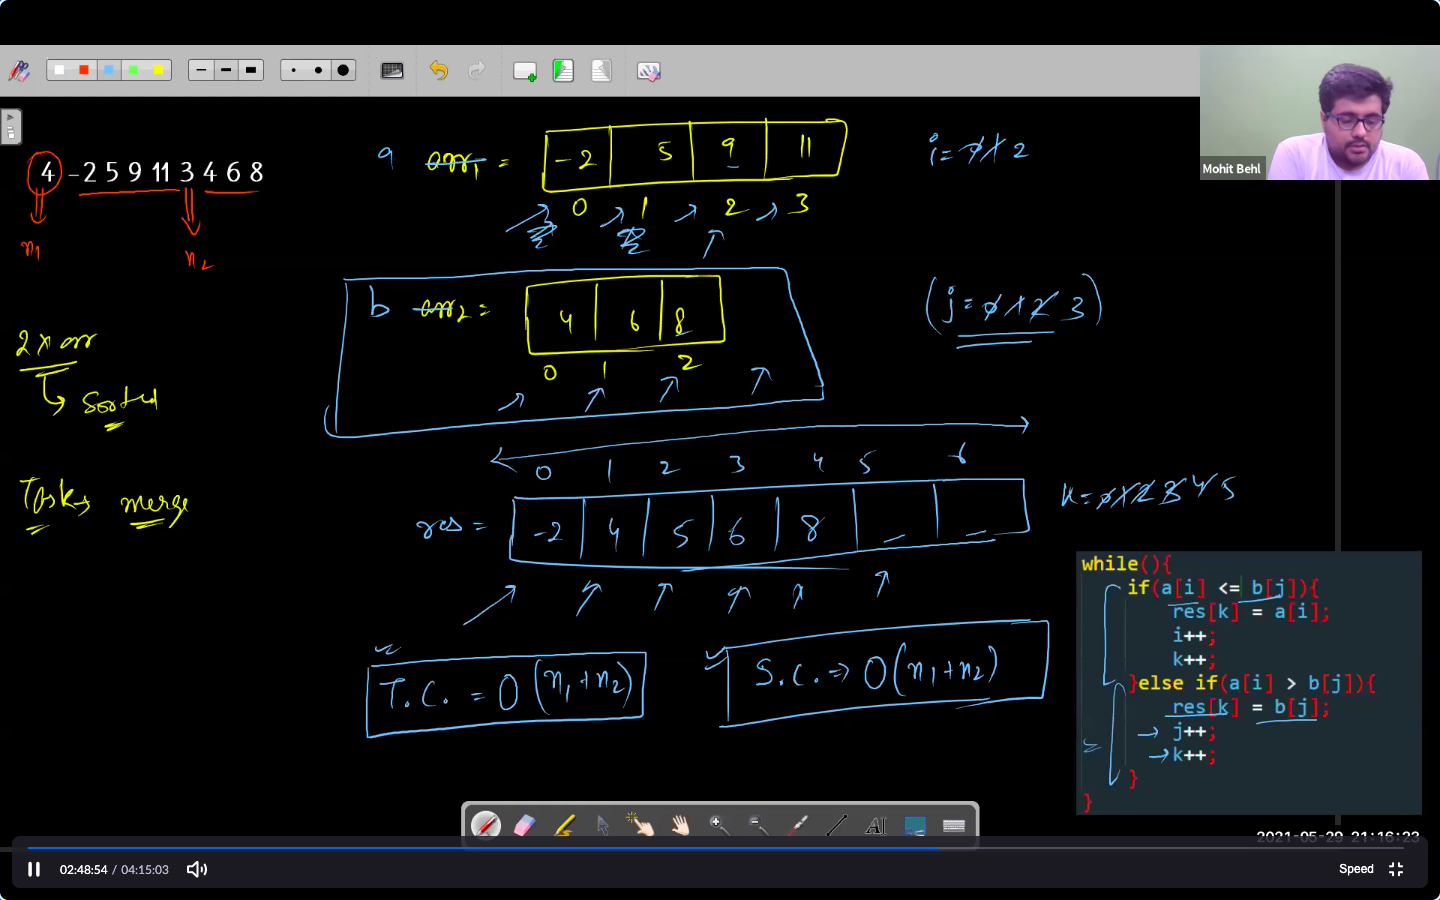 Mohit Behl
4 -2 5 9 11 3 4 6 8
n1
n2
2 x arr
Sorted
Task → merge
a arr1 = -2 5 9 11
0 1 2 3
i = 0 1 2
b arr2 = 4 6 8
0 1 2
(j = 0 1 2 3)
0 1 2 3 4 5 6
res = -2 4 5 6 8 _ _
k = 0 1 2 3 4 5
T.C. = O(n1+n2)
S.C. => O(n1+n2)
while(){
if(a[i] <= b[j]){
res[k] = a[i];
i++;
k++;
}else if(a[i] > b[j]){
res[k] = b[j];
→ j++;
→ k++;
}
}
AI
2021-05-29 21:16:23
02:48:54 / 04:15:03
Speed